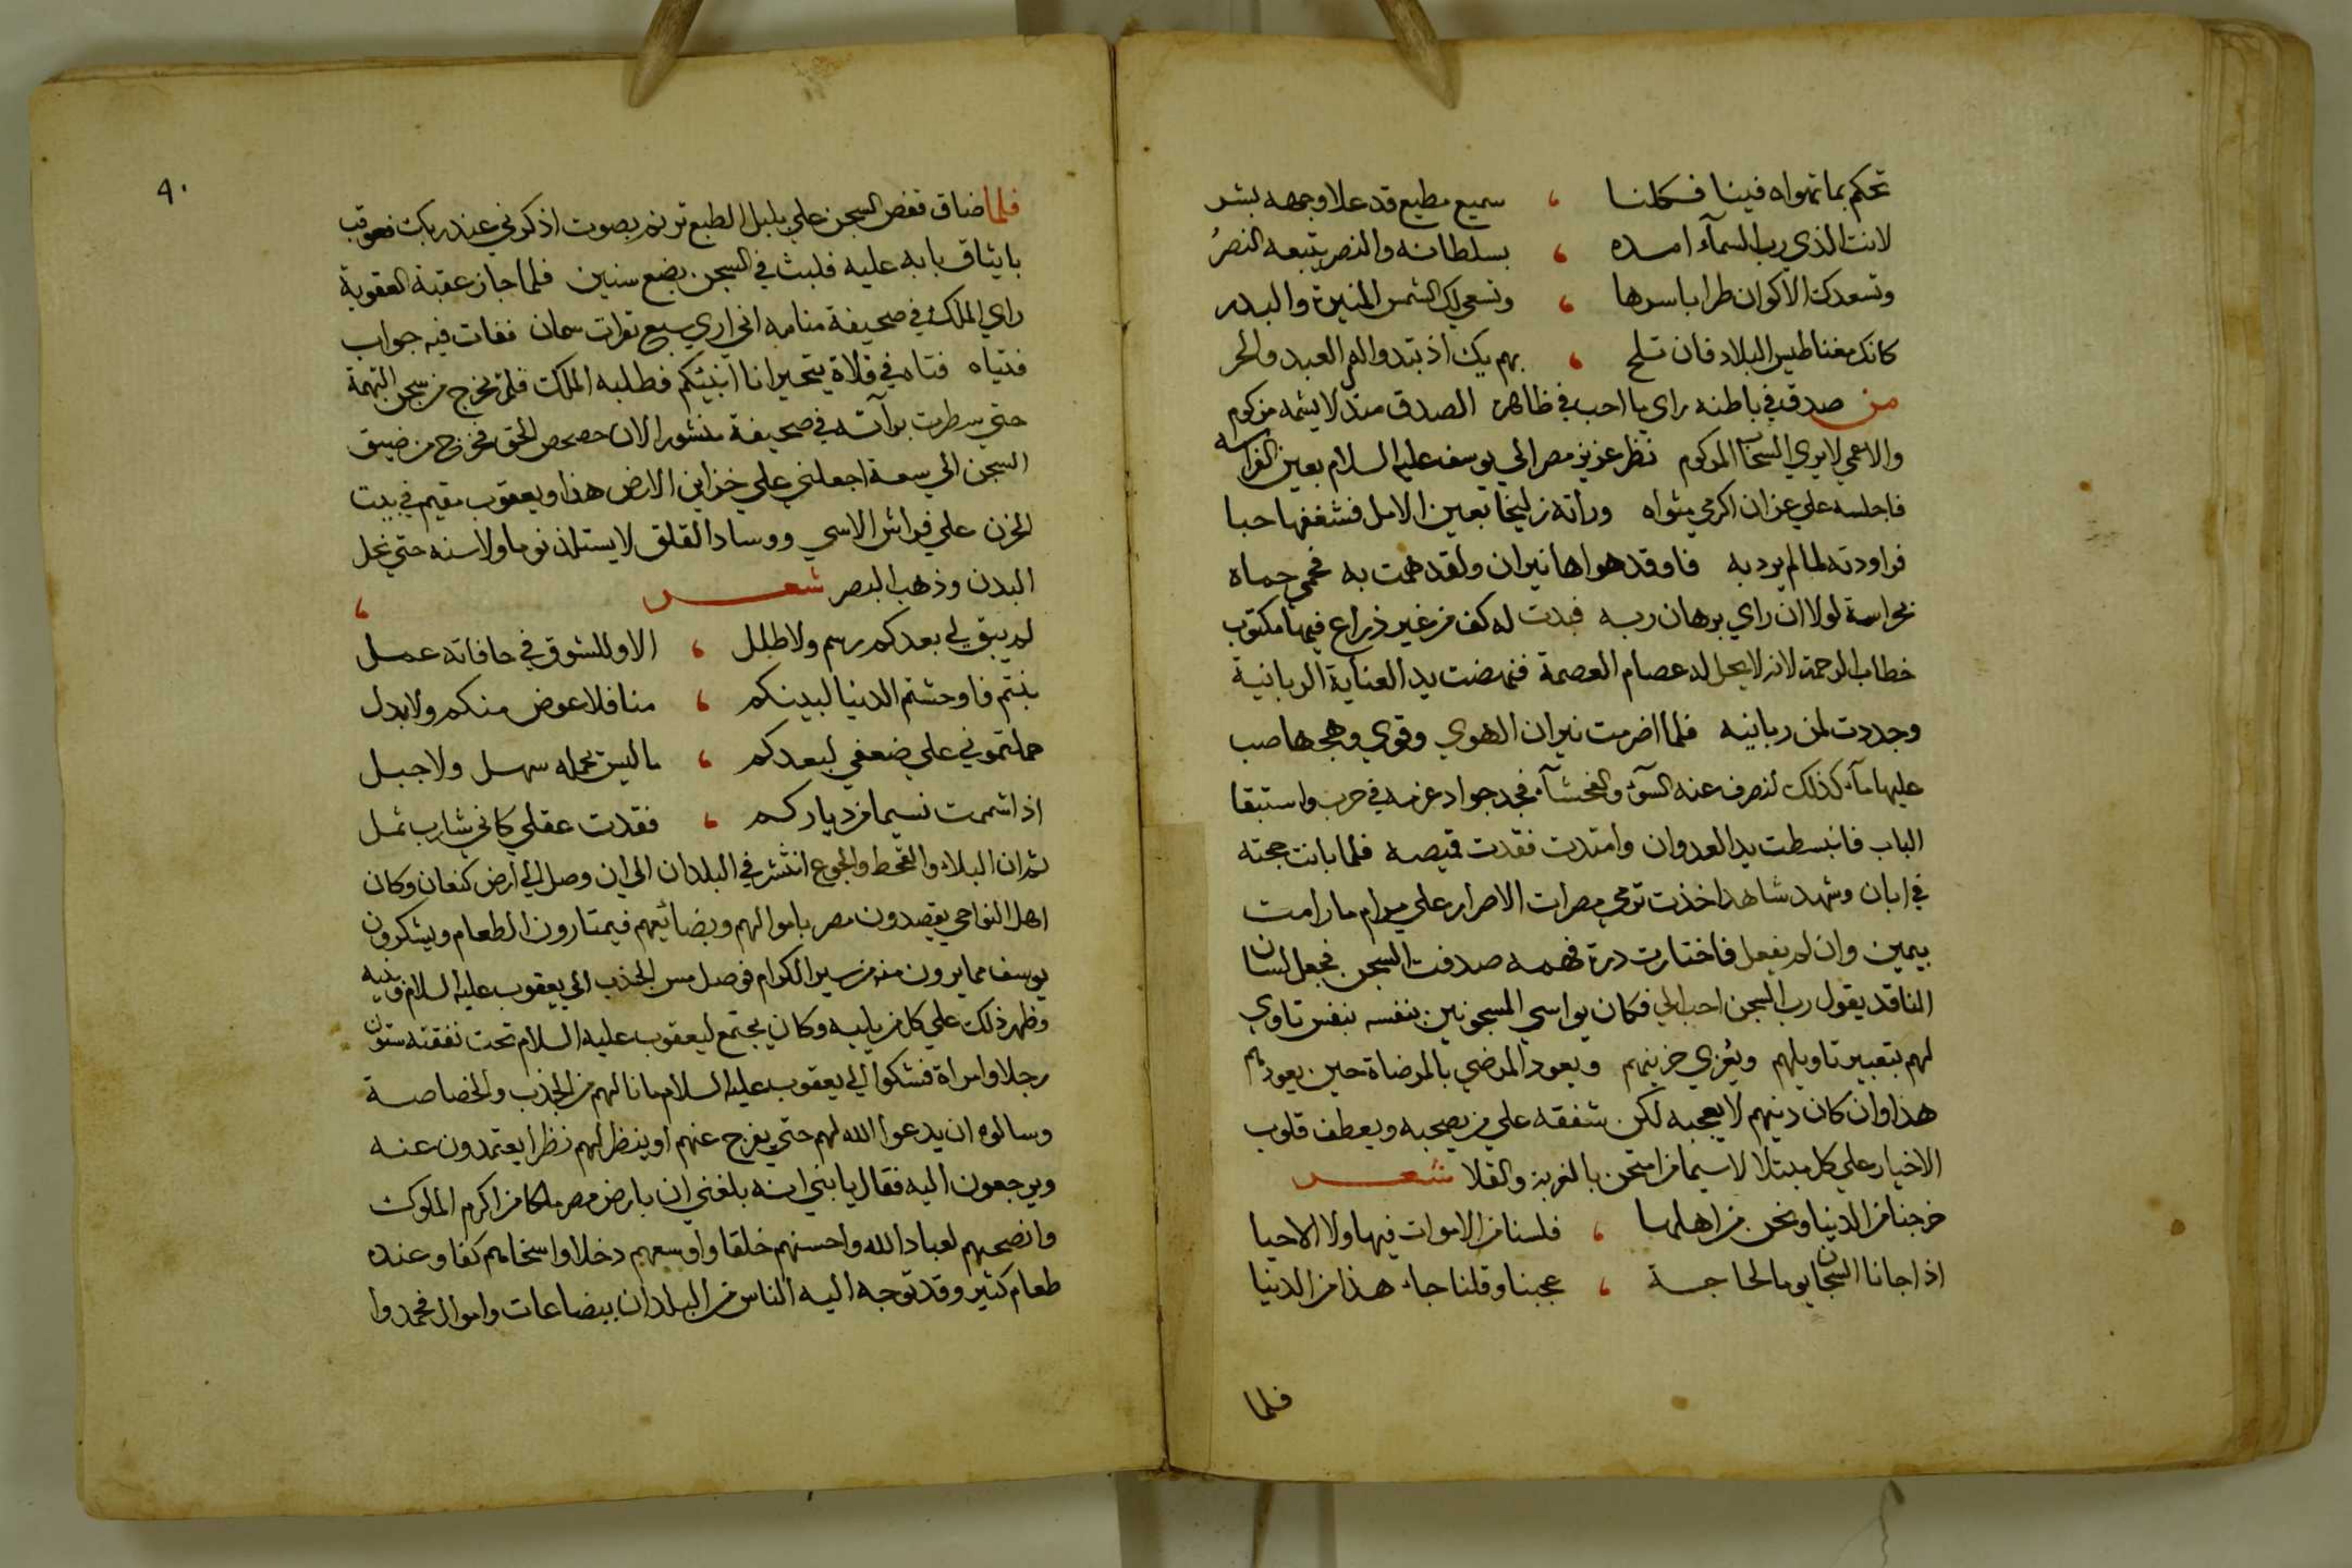 تحكم بما تهواه فينا فكلنا ، سميع مطيع قد علا وجهه بشر
لانت الذي رب السمآء امده ، بسلطانه والنصر يتبعه النصرُ
وتسعدك الاكوان طرا باسرها ، وتسعي لك الشمس المنيرة والبدر
كانك مغناطيس البلاد فان تلح ، بهم يك اذ تبدو العبد والحر
من صدق في باطنه راي ما احب في ظاهره الصدق مندل لا يشمه مزكوم
والاعمي لا يري السحاب المركوم نظر عزيز مصر الي يوسف عليه السلام بعين الفراسه
فاجلسه علي عز ان اكرمي مثواه وراته زليخا بعين الامل فشغفها حبا
فراودته لما لم يرد به فاوقد هواها نيران ولقد همت به فحمي حماه
بحراسة لولا ان راي برهان ربه فبدت له كف من غير ذراع فيها مكتوب
خطاب الرحمة لانه لا يحل له عصام العصمة فنهضت يد العناية الربانية
وجددت لمن ربانيه فلما اضرمت نيران الهوي وقوي وهجها صب
عليها مآء كذلك لنصرف عنه السوٓء والفحشآء فجد جواد عزمه في حرب واستبقا
الباب فانبسطت يد العدوان وامتدت فقدت قميصه فلما بانت حجته
في ابان وشهد شاهد اخذت ترمي جمرات الاصرار علي مرام ما رامت
بيمين وان لم يفعل فاختارت درة فهمه صدفت السجن فجعل لسان
الناقد يقول رب السجن احب الي فكان يواسي المسجونين بنفسه بنفس تاوي
لهم بتعبير تاويلهم ويُعزي حزينهم ويعود المرضي بالمرضاة حين يعودهم
هذا وان كان دينهم لا يعجبه لكن شفقه علي من يصحبه ويعطف قلوب
الاخيار علي كل مبتلا لا سيما من امتحن بالغربة والقلا شعر
خرجنا من الدنيا ونحن من اهلها ، فلسنا من الاموات فيها ولا الاحيا
اذا جانا السجان يوما لحاجة ، عجبنا وقلنا جاء هذا من الدنيا
فلما
٩٠
فلما ضاق قفص السجن علي بلبل الطبع ترنم بصوت اذكرني عند ربك فعوقب
بايثاق بابه عليه فلبث في السجن بضع سنين فلما جاز عقبة العقوبة
راي الملك في صحيفة منامه اني اري سبع بقرات سمان ففات فيه جواب
فتياه فتاه في فلاة يتحير انا انبئكم فطلبه الملك فلم يخرج من سجن التهمة
حتي سطرت برآته في صحيفة منشور الان حصحص الحق فخرج من ضيق
السجن الي سعة اجعلني علي خزاين الارض هذا ويعقوب مقيم في بيت
الحزن علي فراش الاسي ووساد القلق لا يستلذ نوما ولا سنه حتي نحل
البدن وذهب البصر شعر ،
لم يبق لي بعدكم رسم ولا طلل ، الا وللشوق في حافاته عمل
بنتم فاوحشتم الدنيا لبينكم ، منا فلا عوض منكم ولا بدل
حملتموني علي ضعفي لبعدكم ، ما ليس يحمله سهل ولا جبل
اذا شممت نسيما من دياركم ، فقدت عقلي كاني شارب ثمل
ثم ان البلاء والقحط والجوع انتشر في البلدان الي ان وصل الي ارض كنعان وكان
اهل النواحي يقصدون مصر باموالهم وبضائعهم فيمتارون الطعام ويشكرون
يوسف مما يرون منه من سير الكرام فوصل مس الجذب الي يعقوب عليه السلام وبنيه
وظهر ذلك علي كل من يليه وكان يجتمع ليعقوب عليه السلام تحت نفقته ستون
رجلا وامراة فشكوا الي يعقوب عليه السلام ما نالهم من الجذب والخصاصة
وسالوه ان يدعوا الله لهم حتي يفرج عنهم او ينظر لهم نظرا يعتمدون عنه
ويرجعون اليه فقال يا بني انه بلغني ان بارض مصر ملكا من اكرم الملوك
وانصحهم لعباد الله واحسنهم خلقا واوسعهم دخلا واسخاهم كفا وعنده
طعام كثير وقد توجه اليه الناس من البلدان ببضاعات واموال فحمدوا